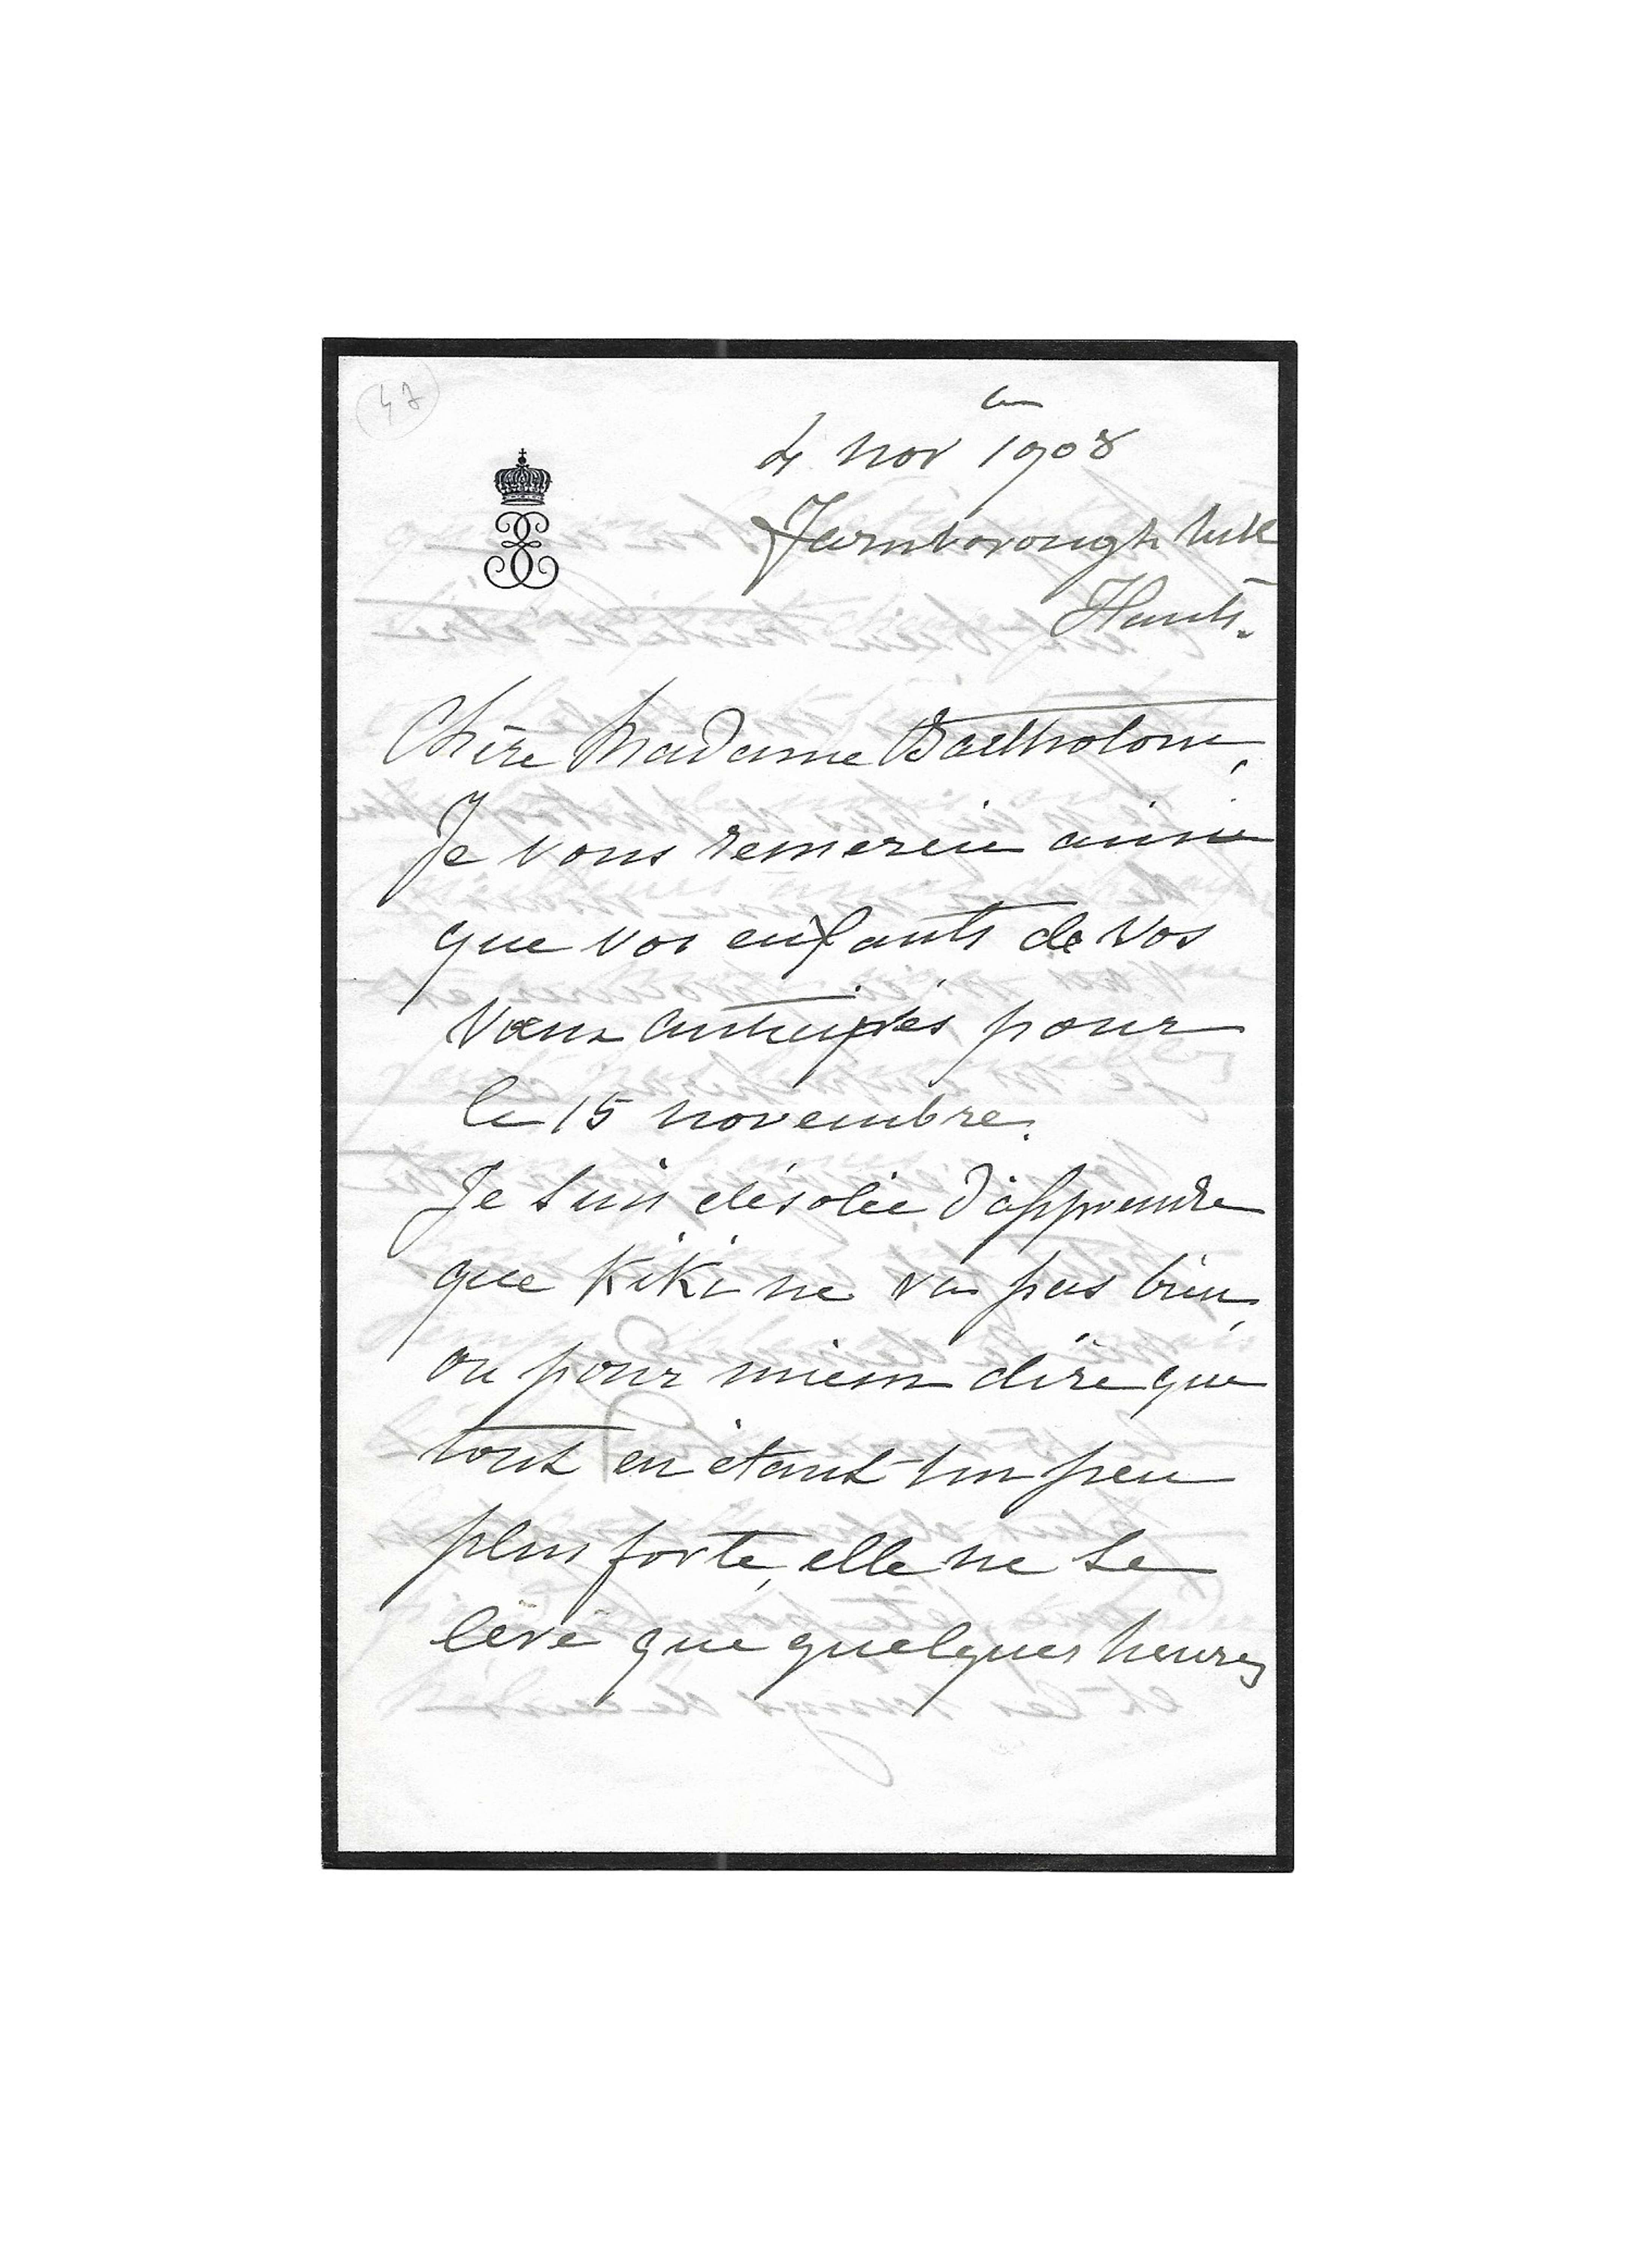 47
le
4 nov 1908
Farnborough Hill
Hants.
Chère Madame Bartholoni,
Je vous remercie ainsi
que vos enfants de vos
vœux anticipés pour
le 15 novembre.
Je suis désolée d'apprendre
que Kiki ne va pas bien,
ou pour mieux dire que
tout en étant un peu
plus forte, elle ne se
lève que quelques heures